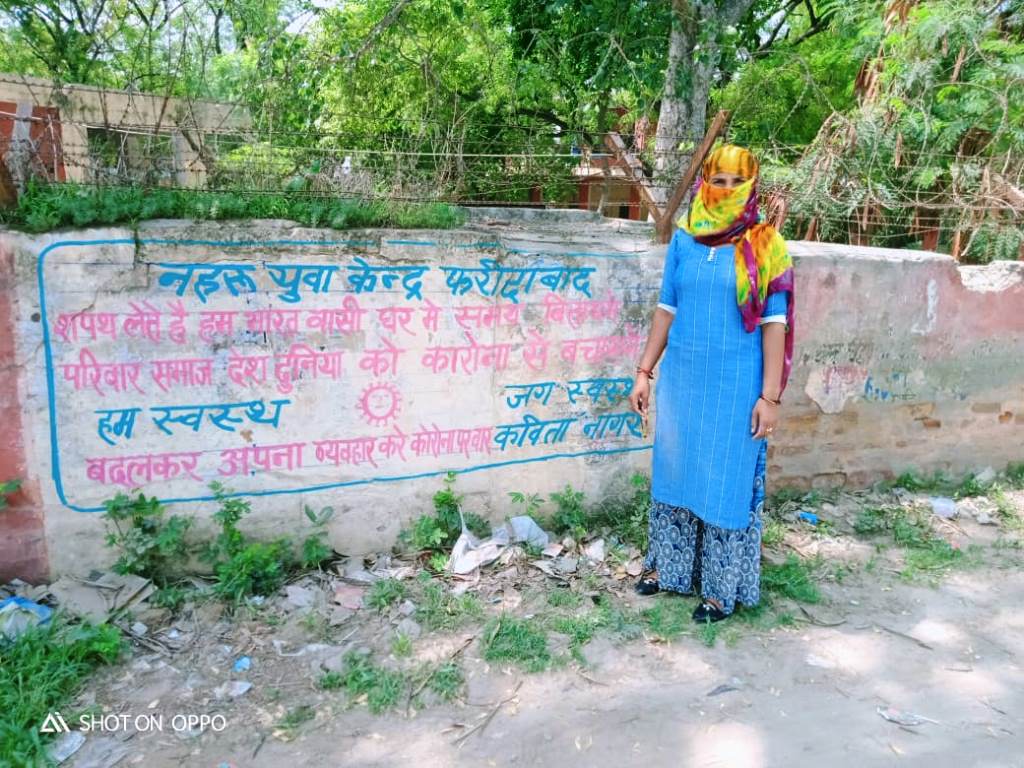 नहरू युवा केन्द्र फरीदाबाद
शपथ लेते है हम भारत वासी घर मे समय
परिवार समाज देश दुनिया को कारोना से
हम स्वस्थ जग
बदलकर अपना व्यवहार करे कोरोना पर वार कविता नागर
SHOT ON OPPO